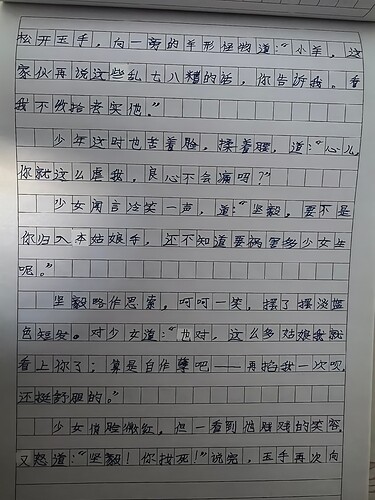 松开玉手，向一旁的羊形怪物道：“小羊，这
家伙再说这些乱七八糟的话，你告诉我。看
我不收拾去实他。”
少年这时也苦着脸，揉着腰，道：“心儿，
你就这么虐我，良心不会痛吗？”
少女闻言冷笑一声，道：“坚毅，要不是
你归入本姑娘手，还不知道要祸害多少女生
呢。”
坚毅略作思索，呵呵一笑，摆了摆淡蓝
色短发。对少女道：“也对，这么多姑娘我就
看上你了；算是自作孽吧——再掐我一次呗，
还挺舒服的。”
少女俏脸微红，但一看到他贱贱的笑容，
又怒道：“坚毅！你找死！”说完，玉手再次向